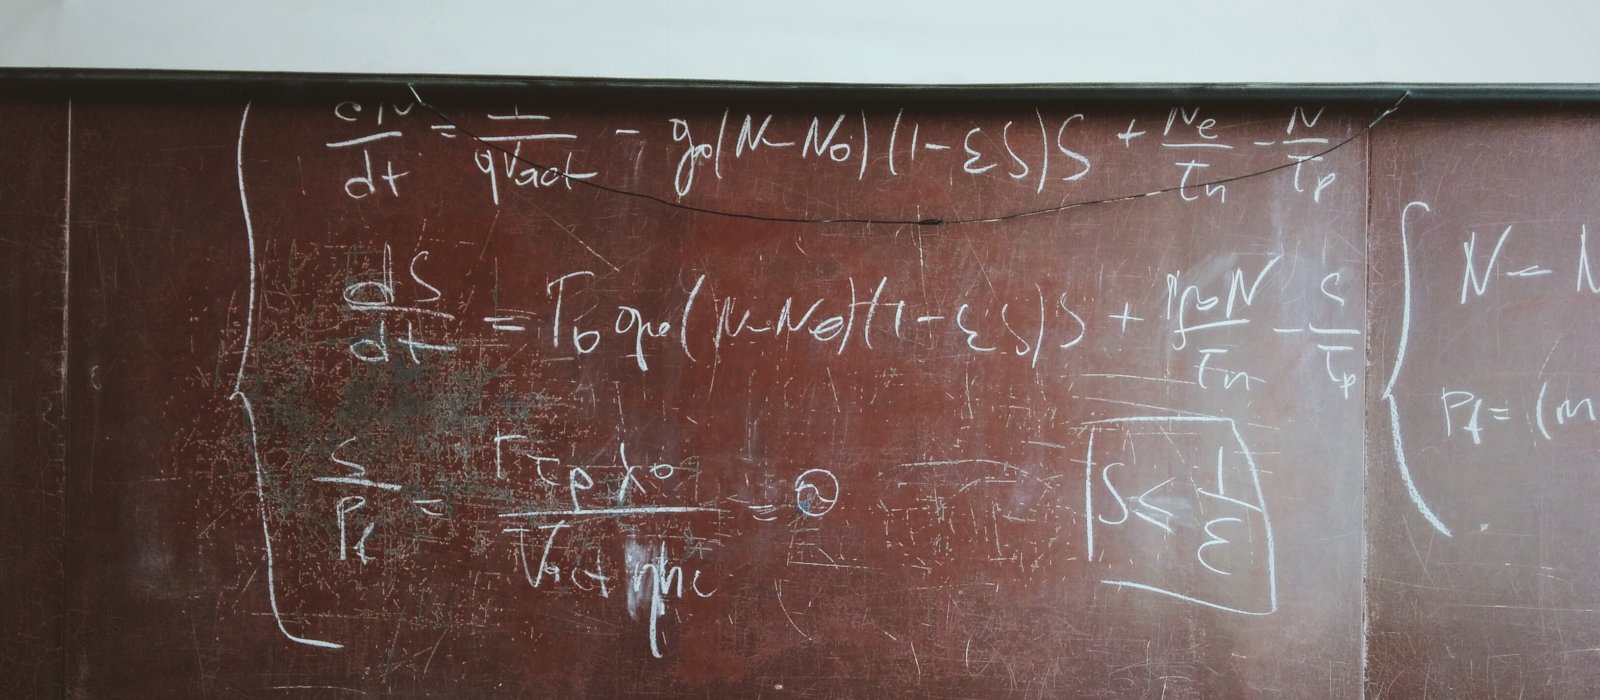 dN/dt = I/qVact - g0(N-N0)(1-εS)S + Ne/τn - N/τp
dS/dt = Γ0 g0(N-N0)(1-εS)S + Γβ N/τn - S/τp
S/Pf = Γτp λ0/Vact ηhc = ϑ
S ≤ 1/ε
N - N
Pf = (m